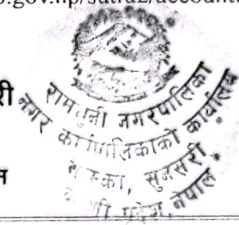 .gov.np/sutra2/account
री
रामधुनी नगरपालिका
नगर कार्यपालिकाको कार्यालय
सुनसरी
प्रदेश, नेपाल